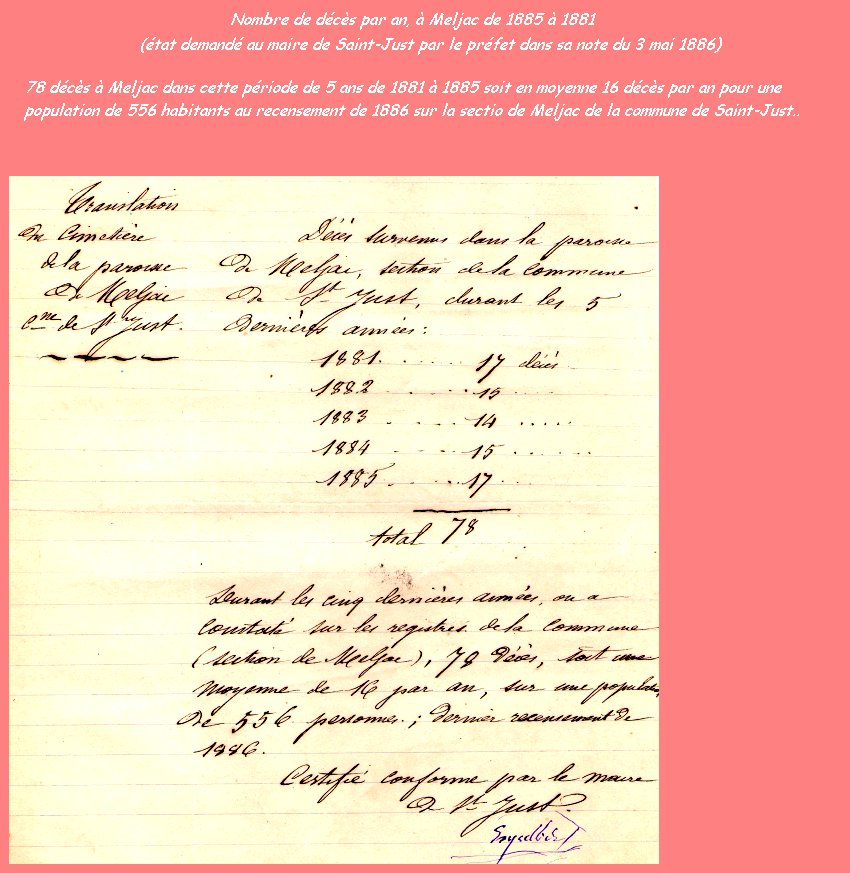 Nombre de décès par an, à Meljac de 1885 à 1881
(état demandé au maire de Saint-Just par le préfet dans sa note du 3 mai 1886)
78 décès à Meljac dans cette période de 5 ans de 1881 à 1885 soit en moyenne 16 décès par an pour une
population de 556 habitants au recensement de 1886 sur la sectio de Meljac de la commune de Saint-Just..
Translation
du Cimetière
de la paroisse
de Meljac
Cne de St Just.
Décès survenus dans la paroisse
de Meljac, section de la commune
de St Just, durant les 5
dernières années :
1881. . . . . . 17 décès
1882 . . . . . 15 . . . .
1883 . . . . . 14 . . . . .
1884 . . . . . 15 . . . . . .
1885 . . . . . 17 . . .
total 78
Durant les cinq dernières années, on a
constaté sur les registres de la Commune
(section de Meljac), 78 décès, soit une
moyenne de 16 par an, sur une population
de 556 personnes. ; dernier recensement de
1886.
Certifié conforme par le maire
de St Just.